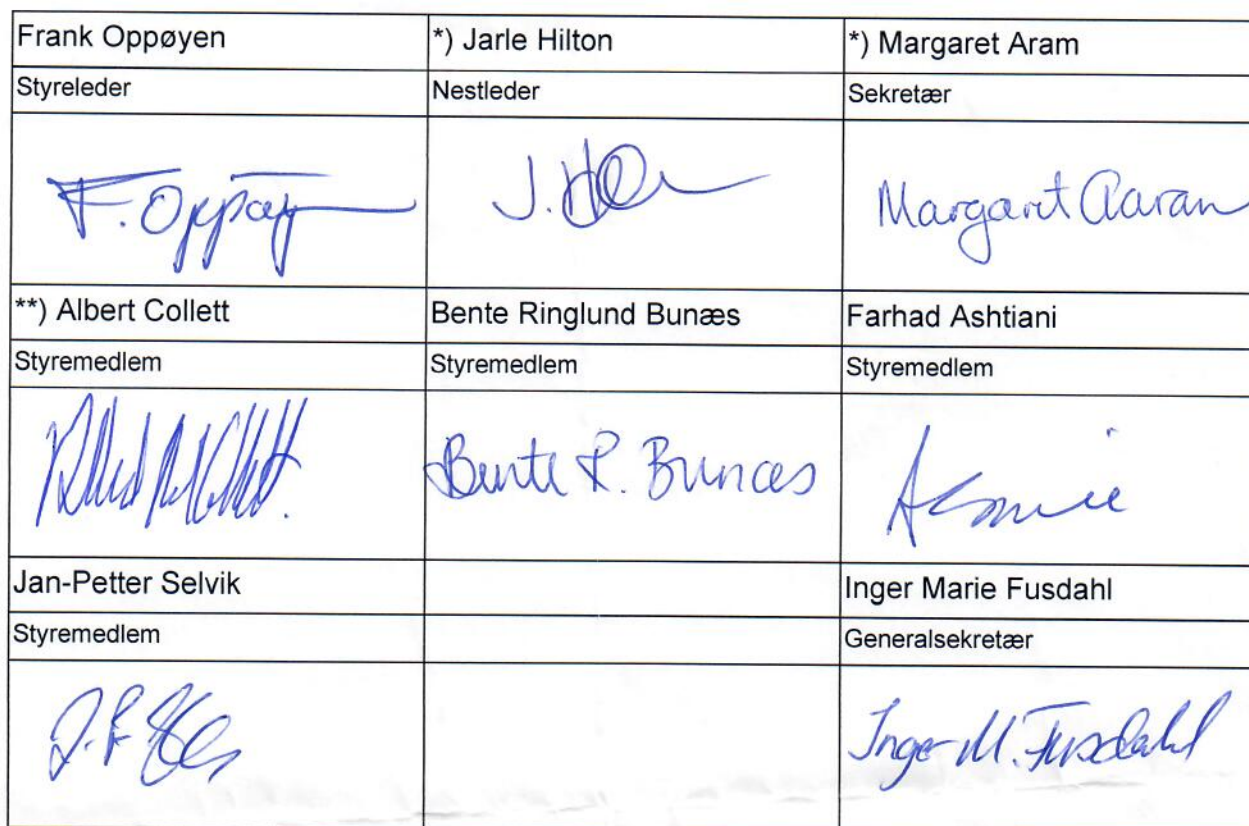 Frank Oppøyen
*) Jarle Hilton
*) Margaret Aram
Styreleder
Nestleder
Sekretær
F. Oppøy
J.
Margaret Aaram
**) Albert Collett
Bente Ringlund Bunæs
Farhad Ashtiani
Styremedlem
Styremedlem
Styremedlem
Bente R. Bunæs
Jan-Petter Selvik
Inger Marie Fusdahl
Styremedlem
Generalsekretær
Inger M. Fusdahl